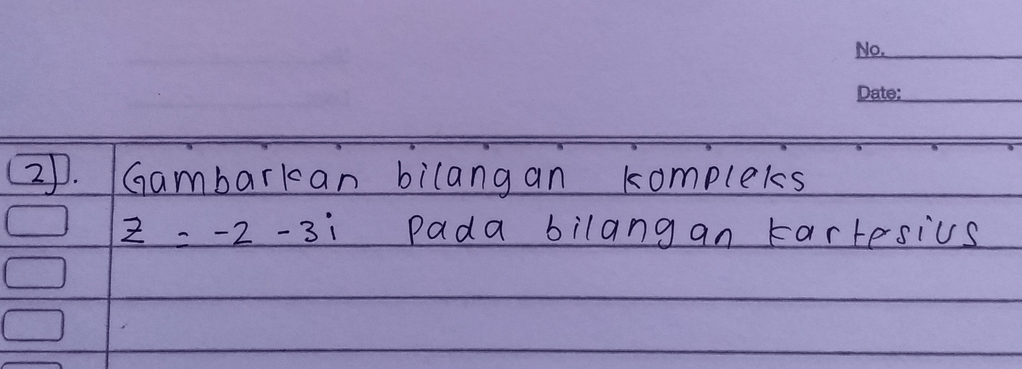 No.
Date:
2). Gambarkan bilangan kompleks
z = -2 -3i pada bilangan kartesius